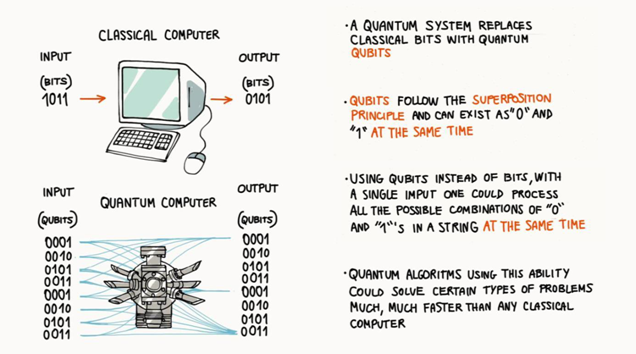 CLASSICAL COMPUTER
INPUT
OUTPUT
(BITS)
(BITS)
1011
0101
QUANTUM COMPUTER
INPUT
OUTPUT
(QUBITS)
(QUBITS)
0001
0010
0101
0011
0001
0010
0101
0011
0001
0010
0101
0011
0001
0010
0101
0011
·A QUANTUM SYSTEM REPLACES
CLASSICAL BITS WITH QUANTUM
QUBITS
·QUBITS FOLLOW THE SUPERPOSITION
PRINCIPLE AND CAN EXIST AS "0" AND
"1" AT THE SAME TIME
·USING QUBITS INSTEAD OF BITS, WITH
A SINGLE IMPUT ONE COULD PROCESS
ALL THE POSSIBLE COMBINATIONS OF "0"
AND "1"'S IN A STRING AT THE SAME TIME
·QUANTUM ALGORITMS USING THIS ABILITY
COULD SOLVE CERTAIN TYPES OF PROBLEMS
MUCH, MUCH FASTER THAN ANY CLASSICAL
COMPUTER